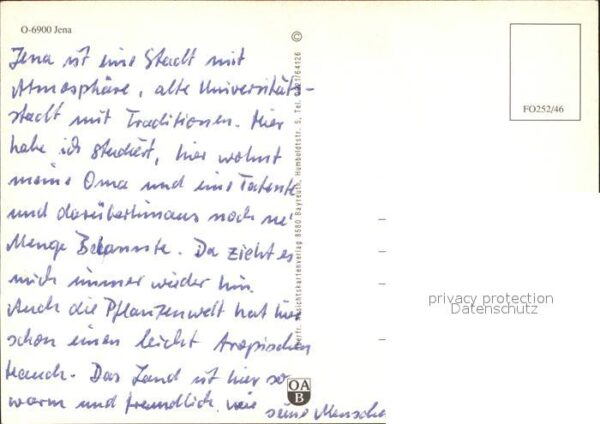 O-6900 Jena
Jena ist eine Stadt mit
Atmosphäre, alte Universitäts-
stadt mit Traditionen. Hier
habe ich studiert, hier wohnt
meine Oma und eine Patente
und darüberhinaus noch ne'
Menge Bekannte. Da zieht es
mich immer wieder hin.
Auch die Pflanzenwelt hat hier
schon einen leicht tropischen
Hauch. Das Land ist hier so
warm und freundlich, wie seine Mensche
©
Verlag 8580 Bayreuth, Humboldtstr. 5, Tel. 0921/64126
OA
B
FO252/46
privacy protection
Datenschutz